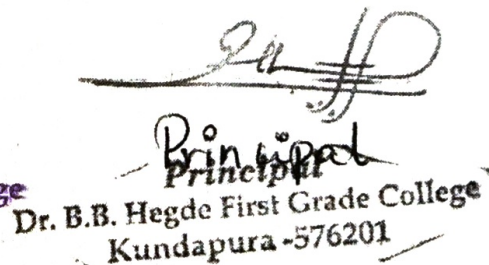 Principal
Principal
ge
Dr. B.B. Hegde First Grade College
Kundapura -576201